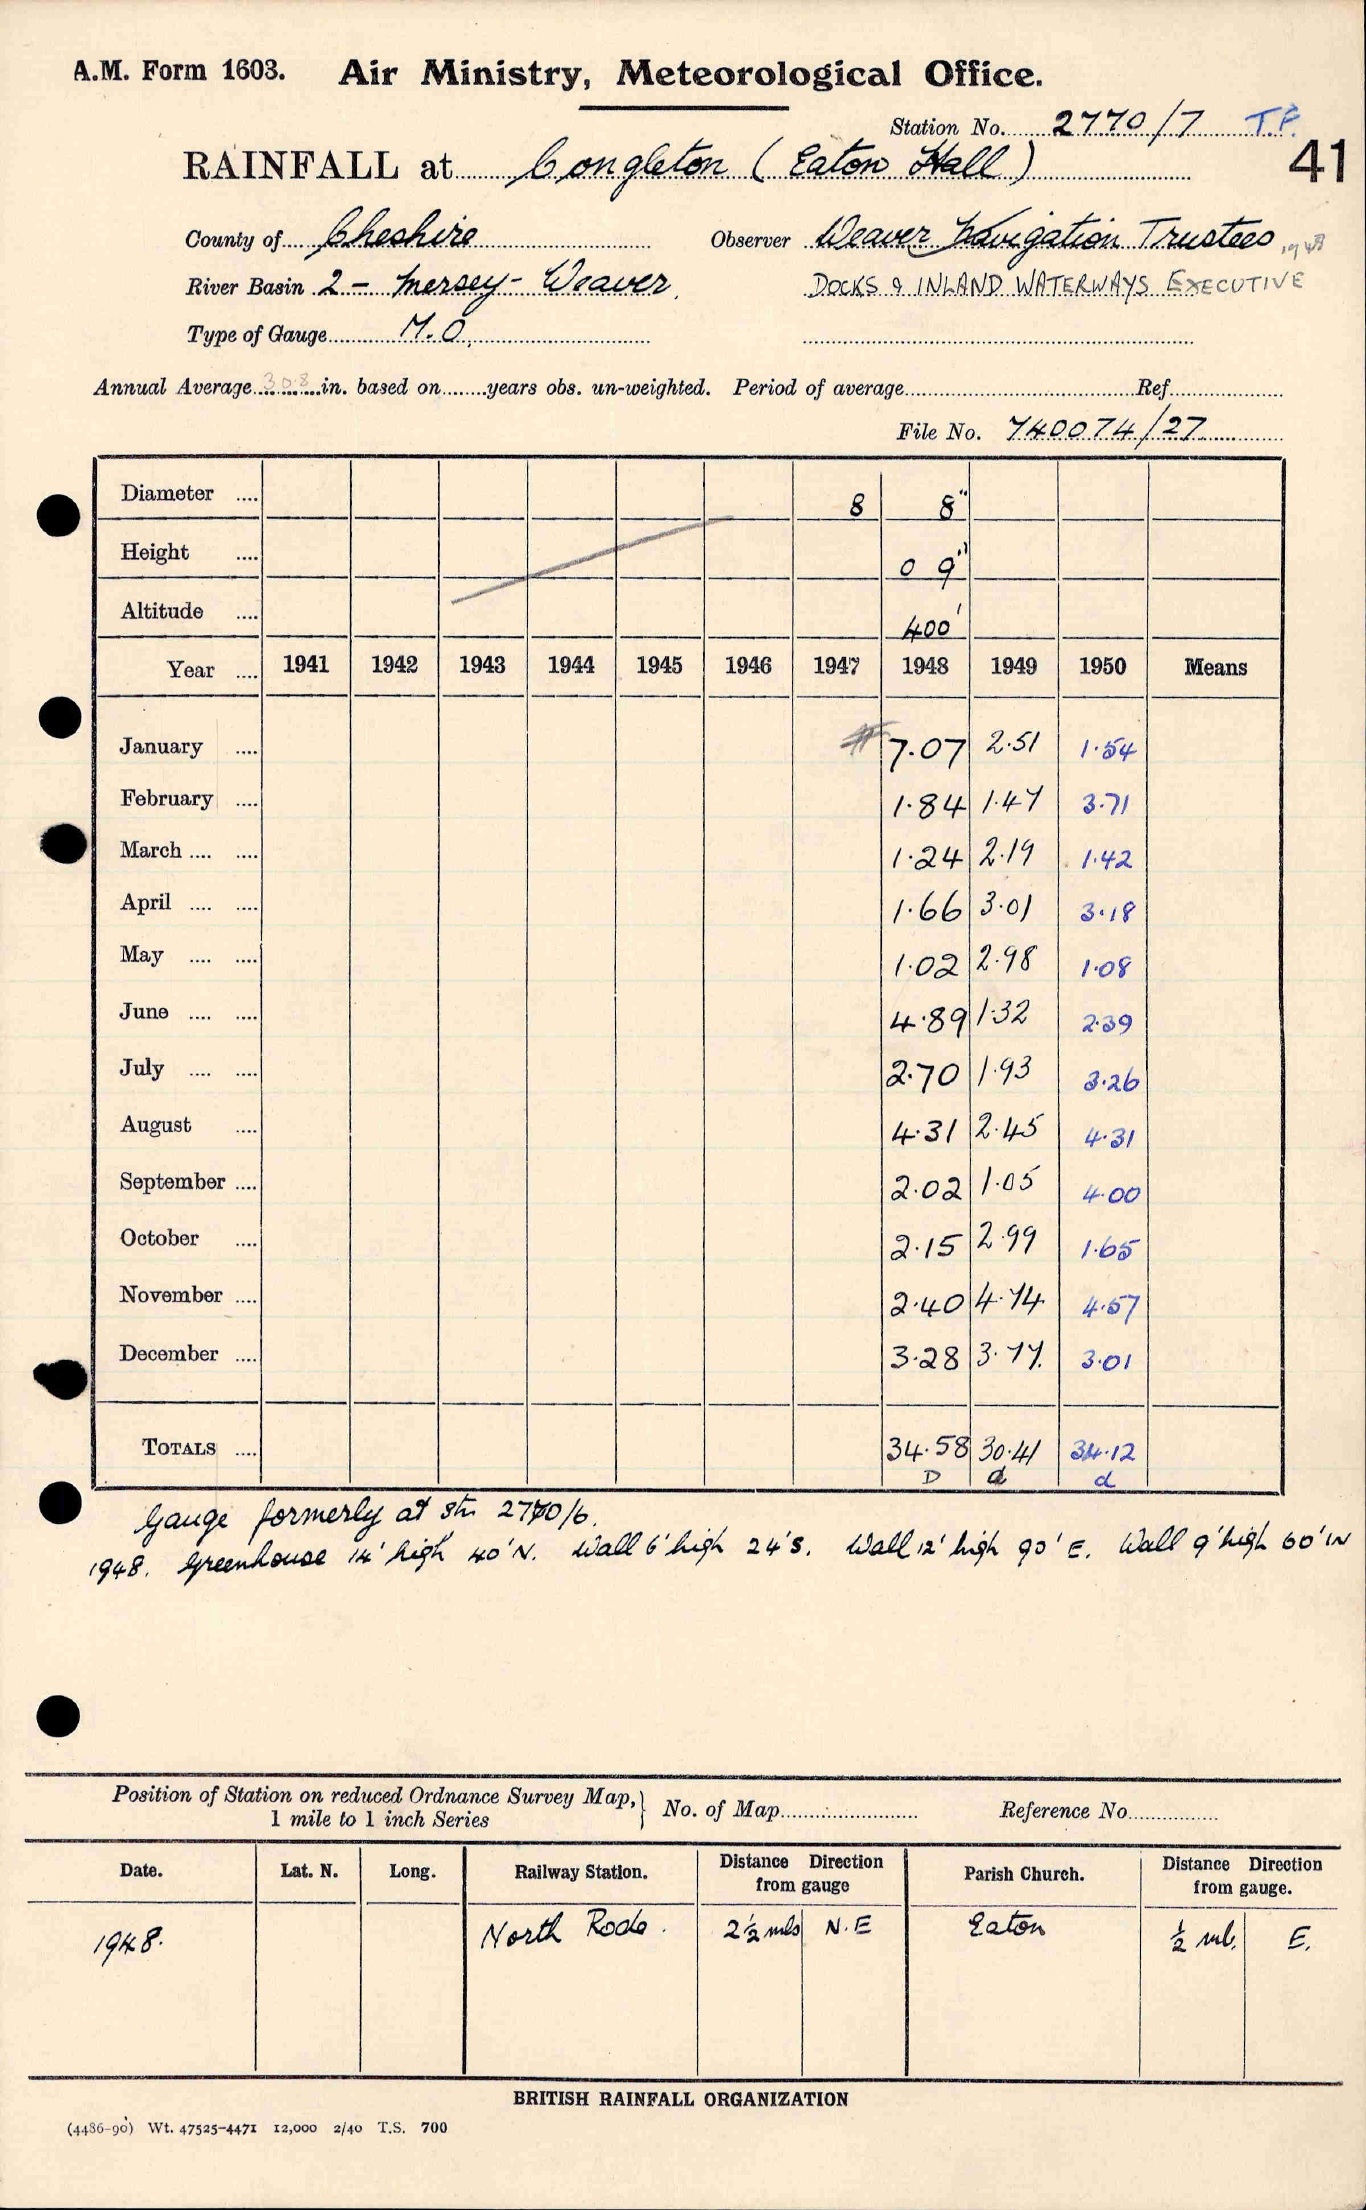 A.M. Form 1603. Air Ministry, Meteorological Office.
Station No. 2770/7 T.P.
41
RAINFALL at Congleton (Eaton Hall)
County of Cheshire Observer Weaver Navigation Trustees 1948
River Basin 2 - Mersey - Weaver. DOCKS & INLAND WATERWAYS EXECUTIVE
Type of Gauge M.O.
Annual Average 30.8 in. based on years obs. un-weighted. Period of average Ref
File No. 740074/27
Diameter 8 8"
Height 0 9"
Altitude 400'
Year 1941 1942 1943 1944 1945 1946 1947 1948 1949 1950 Means
January # 7.07 2.51 1.54
February 1.84 1.47 3.71
March 1.24 2.19 1.42
April 1.66 3.01 3.18
May 1.02 2.98 1.08
June 4.89 1.32 2.39
July 2.70 1.93 3.26
August 4.31 2.45 4.31
September 2.02 1.05 4.00
October 2.15 2.99 1.65
November 2.40 4.74 4.57
December 3.28 3.77. 3.01
TOTALS 34.58 30.41 34.12
D d d
Gauge formerly at stn 2770/6.
1948. Greenhouse 14' high 40' N. Wall 6' high 24' S. Wall 12' high 90' E. Wall 9' high 60' W
Position of Station on reduced Ordnance Survey Map, 1 mile to 1 inch Series } No. of Map Reference No.
Date. Lat. N. Long. Railway Station. Distance Direction from gauge Parish Church. Distance Direction from gauge.
1948. North Rode. 2½ mls N.E Eaton ½ ml. E.
BRITISH RAINFALL ORGANIZATION
(4486-90) Wt. 47525-4471 12,000 2/40 T.S. 700